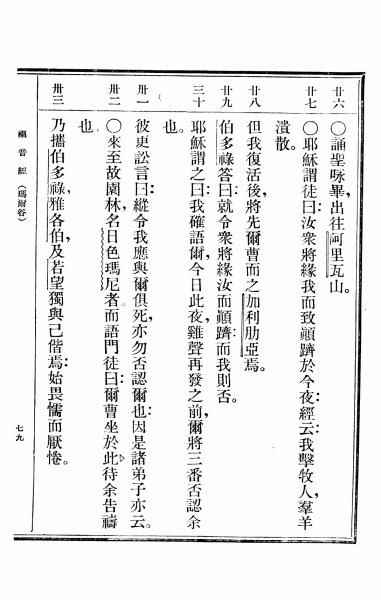 廿六 ○誦聖咏畢出往阿里瓦山。
廿七 ○耶穌謂徒曰汝衆將緣我而致顚躋於今夜經云我擊牧人羣羊
潰散。
廿八 但我復活後將先爾曹而之加利肋亞焉。
廿九 伯多祿答曰就令衆將緣汝而顚躋而我則否。
三十 耶穌謂之曰我確語爾今日此夜雞聲再發之前爾將三番否認余
也。
卅一 彼更訟言曰縱令我應與爾俱死亦勿否認爾也因是諸弟子亦云。
卅二 ○來至故園林名日色瑪尼者而語門徒曰爾曹坐於此待余告禱
也。
卅三 乃攜伯多祿雅各伯及若望獨與己偕焉始畏懦而厭惓。
福音經 (瑪爾谷)
七九